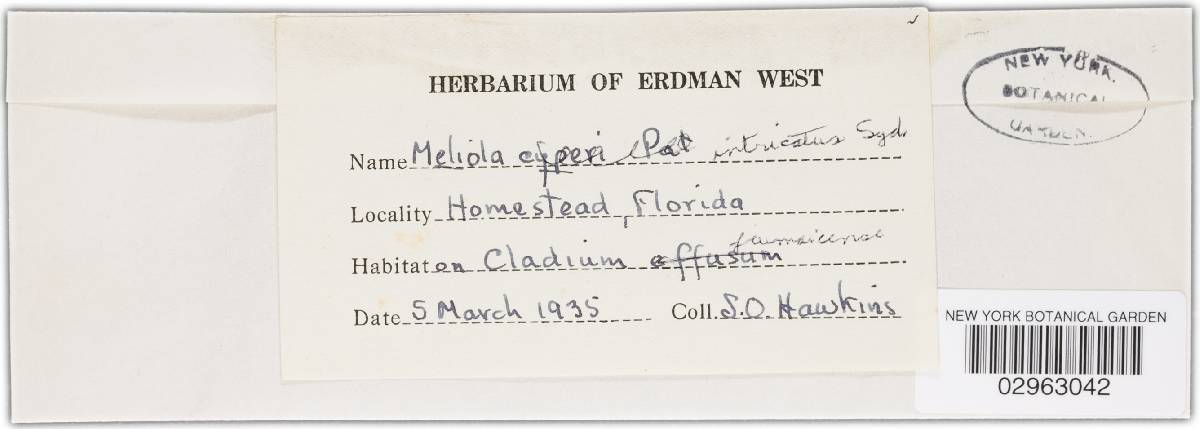 HERBARIUM OF ERDMAN WEST
Name Meliola cyperi Pat intricatus Syd.
Locality Homestead, Florida
jamaicense
Habitat on Cladium effusum
Date 5 March 1935 Coll. S.O. Hawkins
NEW YORK
BOTANICAL
GARDEN.
NEW YORK BOTANICAL GARDEN
02963042